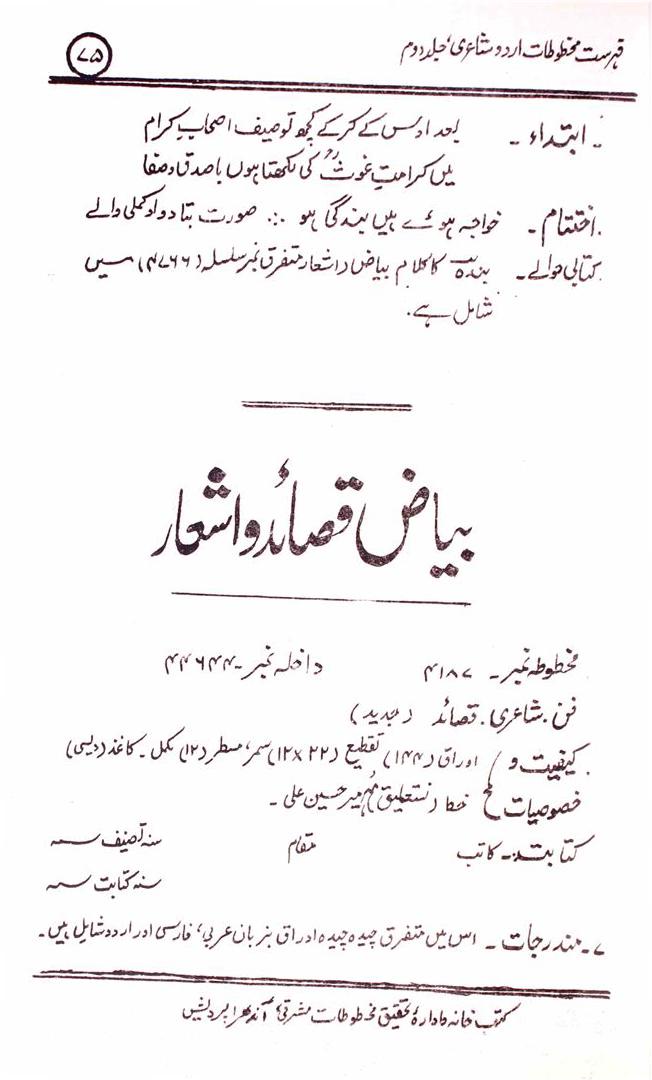 فہرست مخطوطات اردو شاعری، جلد دوم
۷۵
ابتداء۔ بعد ازس کے کر کے کچھ توصیف اصحابِ کرام
میں کرامت غوثؒ کی لکھتا ہوں با صدق و صفا
اختتام۔ خواجہ ہوئے ہیں بندگی ہو ∴ صورت بتا دو او کملی والے
کتابی حوالے۔ بندہ کا کلام بیاض و اشعار متفرق نمبر سلسلہ (۴۷۶۶) میں
شامل ہے۔
بیاض قصائد و اشعار
مخطوطہ نمبر۔ ۴۱۸۷ داخلہ نمبر۔ ۴۴۶۴۴
فن۔ شاعری۔ قصائد (جدید)
کیفیت و اوراق (۱۴۴) تقطیع (۲۲ x ۱۲) سمر، مسطر (۱۲) مکمل۔ کاغذ (دیسی)
خصوصیات خط (نستعلیق) مُہر میر حسین علی۔
کتابت:۔ کاتب مقام سنہ تصنیف
سنہ کتابت
۷۔ مندرجات۔ اس میں متفرق چیدہ چیدہ اوراق بزبان عربی، فارسی اور اردو شامل ہیں۔
کتب خانہ و ادارۂ تحقیق مخطوطات مشرقی، آندھرا پردیش